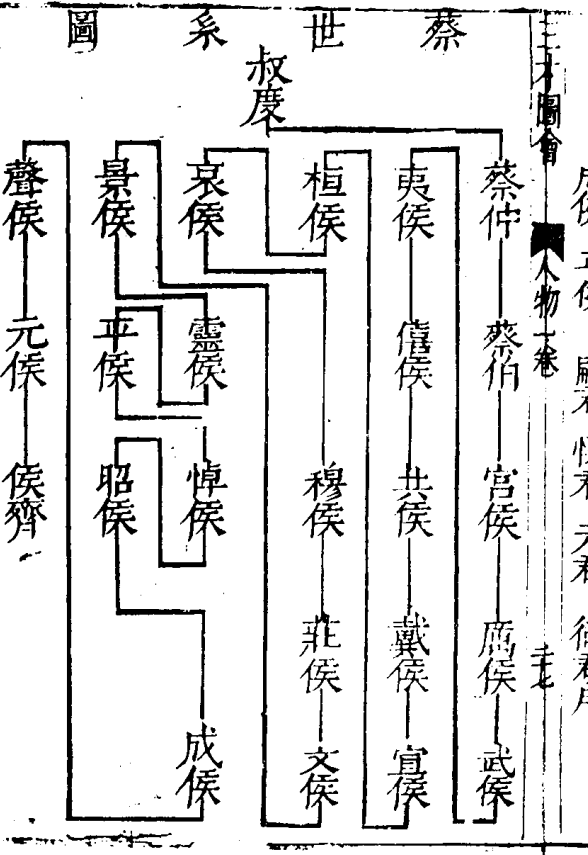 三才圖會
人物一卷
二十七
蔡世系圖
叔慶
蔡仲
蔡伯
宮侯
厲侯
武侯
夷侯
僖侯
共侯
戴侯
宣侯
桓侯
穆侯
莊侯
文侯
哀侯
靈侯
悼侯
成侯
景侯
平侯
昭侯
聲侯
元侯
侯齊